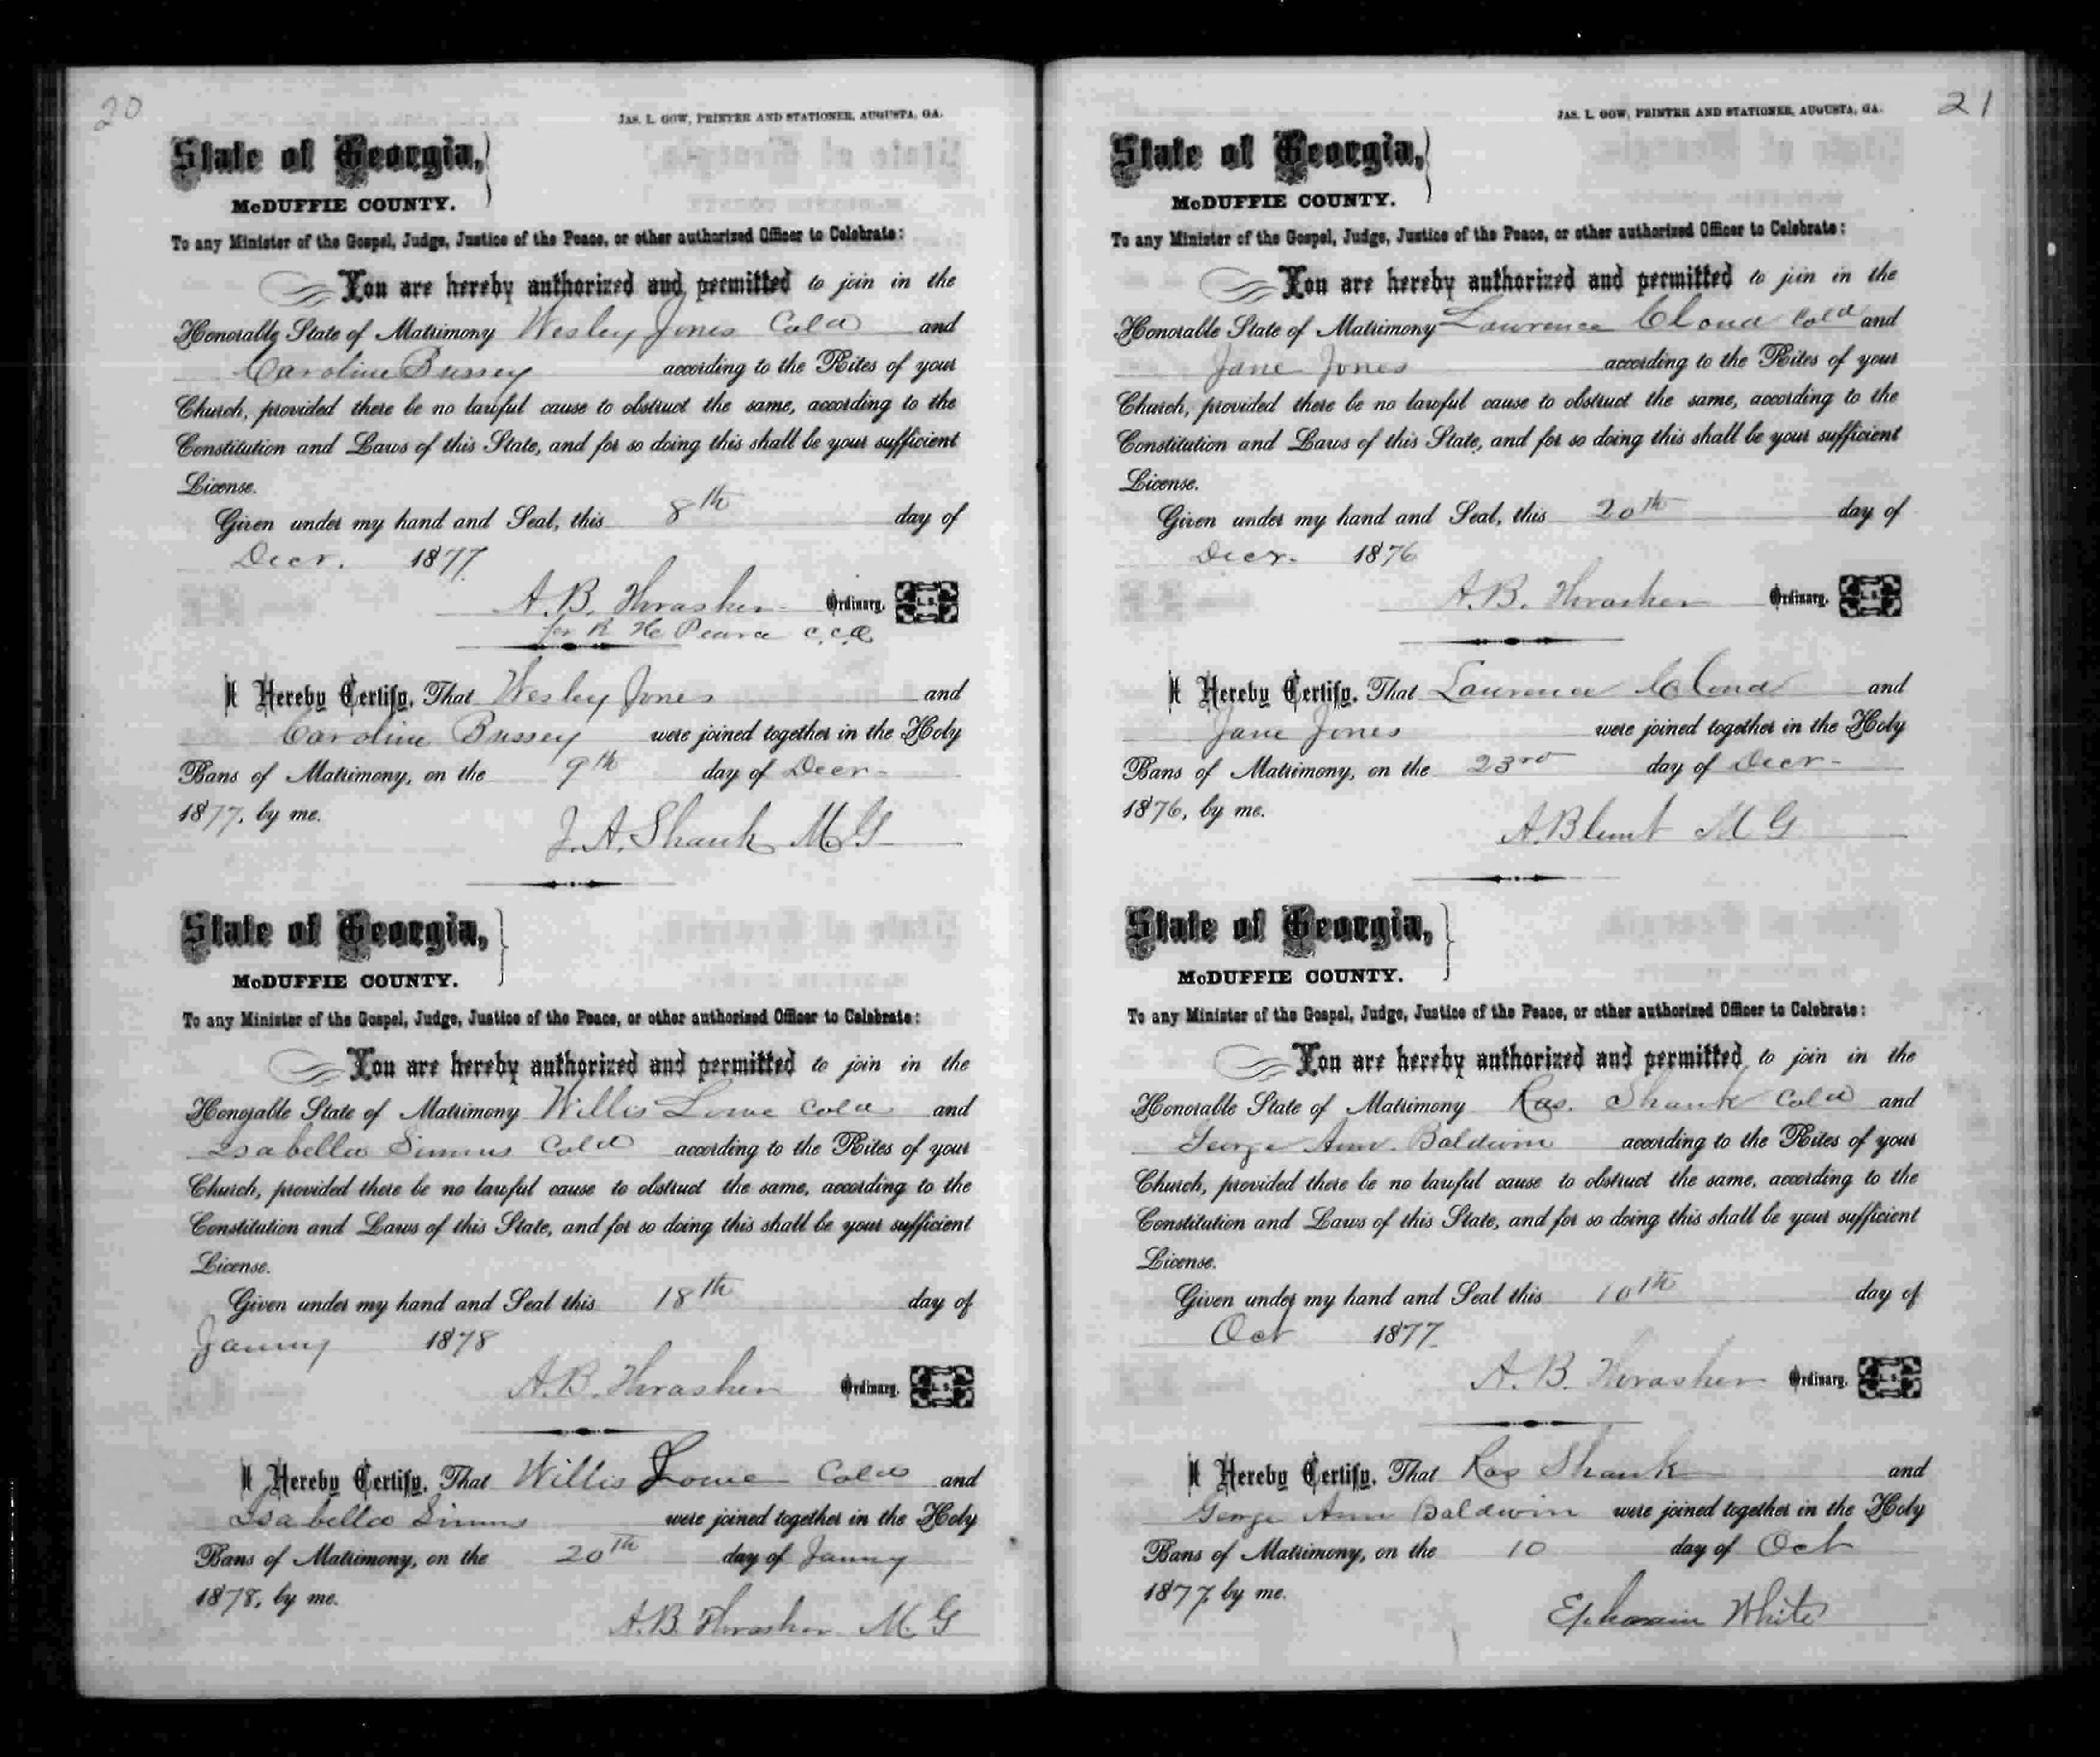 20
JAS. L. GOW, PRINTER AND STATIONER, AUGUSTA, GA.
State of Georgia,
McDUFFIE COUNTY.
To any Minister of the Gospel, Judge, Justice of the Peace, or other authorized Officer to Celebrate:
You are hereby authorized and permitted to join in the
Honorable State of Matrimony Wesley Jones Cold and
Caroline Bussey according to the Rites of your
Church, provided there be no lawful cause to obstruct the same, according to the
Constitution and Laws of this State, and for so doing this shall be your sufficient
License.
Given under my hand and Seal, this 8th day of
Decr. 1877.
A. B. Thrasher Ordinary. L.S.
for R H Pearce c.c.o.
I Hereby Certify, That Wesley Jones and
Caroline Bussey were joined together in the Holy
Bans of Matrimony, on the 9th day of Decr-
1877, by me.
J. A. Shank M.G
State of Georgia,
McDUFFIE COUNTY.
To any Minister of the Gospel, Judge, Justice of the Peace, or other authorized Officer to Celebrate:
You are hereby authorized and permitted to join in the
Honorable State of Matrimony Willis Lowe Cold and
Isabella Simms Cold according to the Rites of your
Church, provided there be no lawful cause to obstruct the same, according to the
Constitution and Laws of this State, and for so doing this shall be your sufficient
License.
Given under my hand and Seal this 18th day of
Janny 1878
A. B. Thrasher Ordinary. L.S.
I Hereby Certify, That Willis Lowe Cold and
Isabella Simms were joined together in the Holy
Bans of Matrimony, on the 20th day of Janny
1878, by me.
A. B. Thrasher M. G
21
JAS. L. GOW, PRINTER AND STATIONER, AUGUSTA, GA.
State of Georgia,
McDUFFIE COUNTY.
To any Minister of the Gospel, Judge, Justice of the Peace, or other authorized Officer to Celebrate:
You are hereby authorized and permitted to join in the
Honorable State of Matrimony Lawrence Cloud Cold and
Jane Jones according to the Rites of your
Church, provided there be no lawful cause to obstruct the same, according to the
Constitution and Laws of this State, and for so doing this shall be your sufficient
License.
Given under my hand and Seal, this 20th day of
Decr. 1876
A. B. Thrasher Ordinary. L.S.
I Hereby Certify, That Lawrence Cloud and
Jane Jones were joined together in the Holy
Bans of Matrimony, on the 23rd day of Decr-
1876, by me.
A. Blunt M G
State of Georgia,
McDUFFIE COUNTY.
To any Minister of the Gospel, Judge, Justice of the Peace, or other authorized Officer to Celebrate:
You are hereby authorized and permitted to join in the
Honorable State of Matrimony Ras. Shank Cold and
George Ann Baldwin according to the Rites of your
Church, provided there be no lawful cause to obstruct the same, according to the
Constitution and Laws of this State, and for so doing this shall be your sufficient
License.
Given under my hand and Seal this 10th day of
Oct 1877.
A. B. Thrasher Ordinary. L.S.
I Hereby Certify, That Ras Shank and
George Ann Baldwin were joined together in the Holy
Bans of Matrimony, on the 10 day of Oct
1877, by me.
Ephraim White